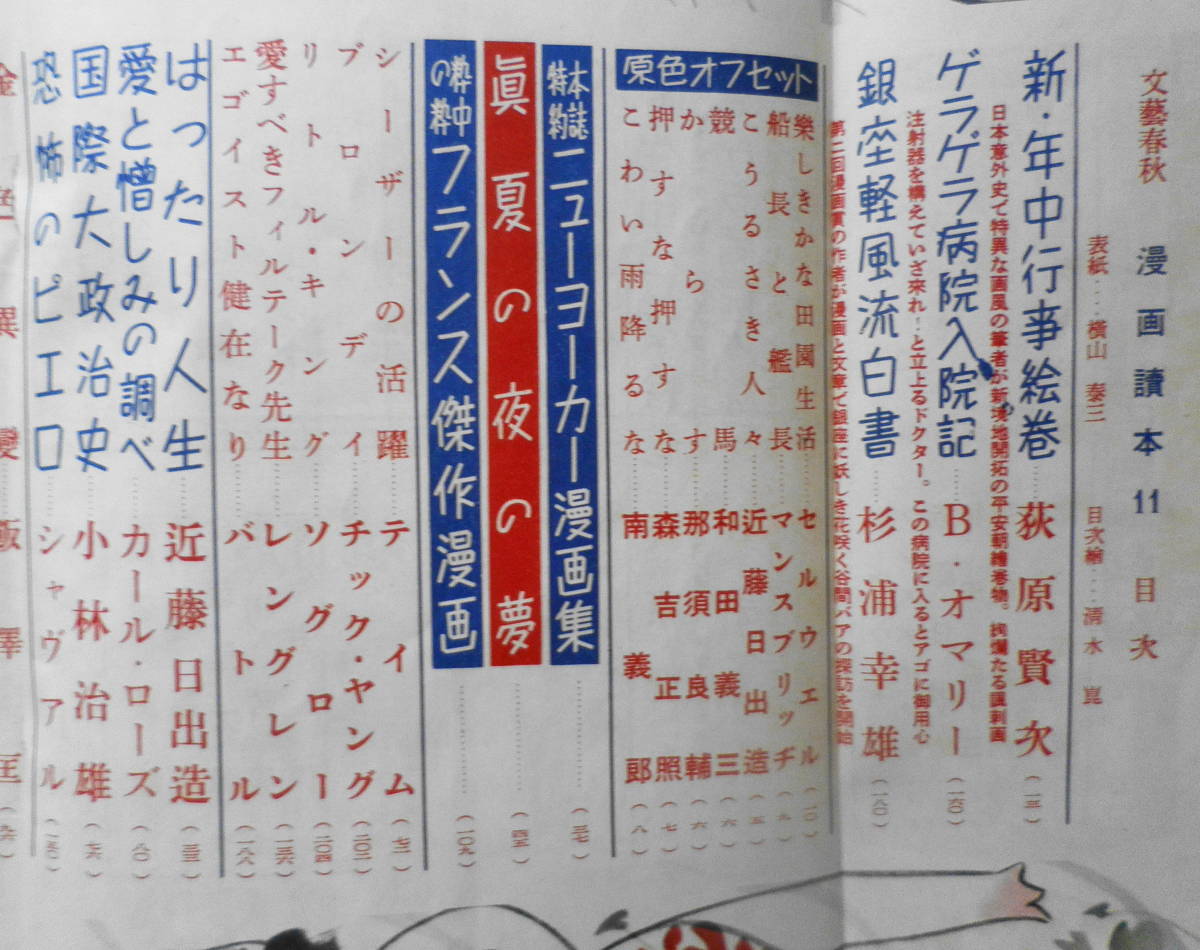 文藝春秋 漫画讀本 11 目次
表紙‥‥横山泰三 目次繪‥‥清水崑
新・年中行事絵巻……荻原賢次
日本意外史で特異な画風の筆者が新境地開拓の平安朝繪巻物。絢爛たる諷刺画
ゲラゲラ病院入院記……B・オマリー（一六〇）
注射器を構えていざ来れ！と立上るドクター。この病院に入るとアゴに御用心
銀座軽風流白書……杉浦幸雄（一八〇）
第二回漫画賞の作者が漫画と文章で銀座に妖しき花咲く谷間バアの探訪を開始
原色オフセット
樂しきかな田園生活……セルウエル（一〇）
船長と艦長……マンスブリッヂ（九）
こうるさき人々……近藤日出造（五）
競馬……和田義三（六）
からす……那須良輔（六）
押すな押すな……森吉正照（七）
こわい雨降るな……南義郎（八）
本誌特約 ニューヨーカー漫画集……（三七）
眞夏の夜の夢……（四五）
粋中の粋 フランス傑作漫画……（一〇九）
シーザーの活躍……テイム（七二）
ブロンディ……チック・ヤング（二〇二）
リトル・キング……ソグロー（二〇四）
愛すべきフィルテーク先生……レングレン（一三六）
エゴイスト健在なり……バトル（一八八）
はったり人生……近藤日出造（三三）
愛と憎しみの調べ……カール・ローズ（八〇）
国際大政治史……小林治雄（七六）
恐怖のピエロ……シャヴアル（一五〇）
金色異變……飯澤匡